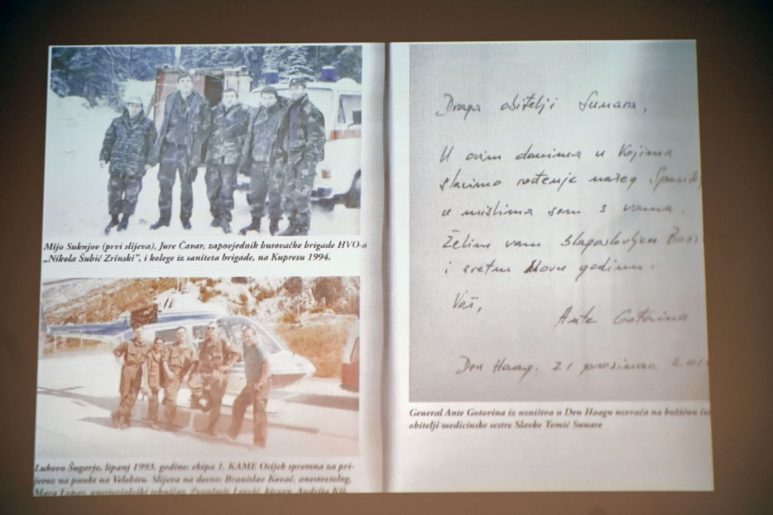 Mijo Suknjov (prvi slijeva), Jure Čavar, zapovjednik busovačke brigade HVO-a
„Nikola Šubić Zrinski", i kolege iz saniteta brigade, na Kupresu 1994.
Lukovo Šugarje, lipanj 1993. godine: ekipa 1. KAME Osijek spremna za pri-
jevoz na punkt na Velebitu. Slijeva na desno: Branislav Kovač, anesteziolog,
Mara anesteziološki tehničar, kirurg, Andrija
Draga obitelji Sunara,
U ovim danima u kojima
slavimo rođenje našeg
u mislima sam s vama.
Želim vam blagoslovljen
i sretnu Novu godinu.
Vaš,
Ante Gotovina
Den Haag, 21 prosinac
General Ante Gotovina iz uzništva u Den Haagu uzvraća na božićnu
obitelji medicinske sestre Slavke Tomić Sunare